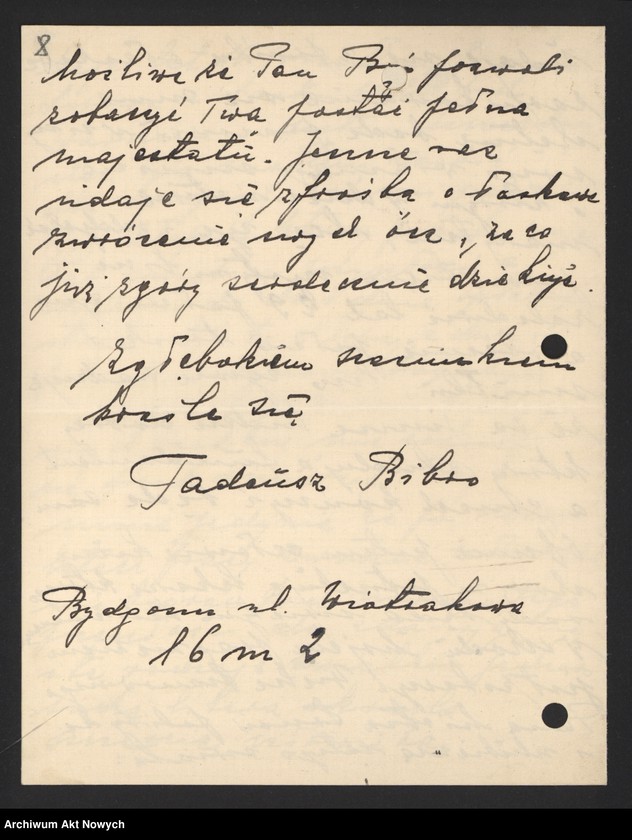 8
możliwe że Pan Bóg pozwoli
zobaczyć Twą postać pełną
majestatu. Jeszcze raz
udaję się z prośbą o łaskawe
zwrócenie mych ócz, za co
już z góry serdecznie dziękuję.
Z głębokiem szacunkiem
kreśle się
Tadeusz Bibro
Bydgoszcz ul. Wiatrakowa
16 m 2
Archiwum Akt Nowych